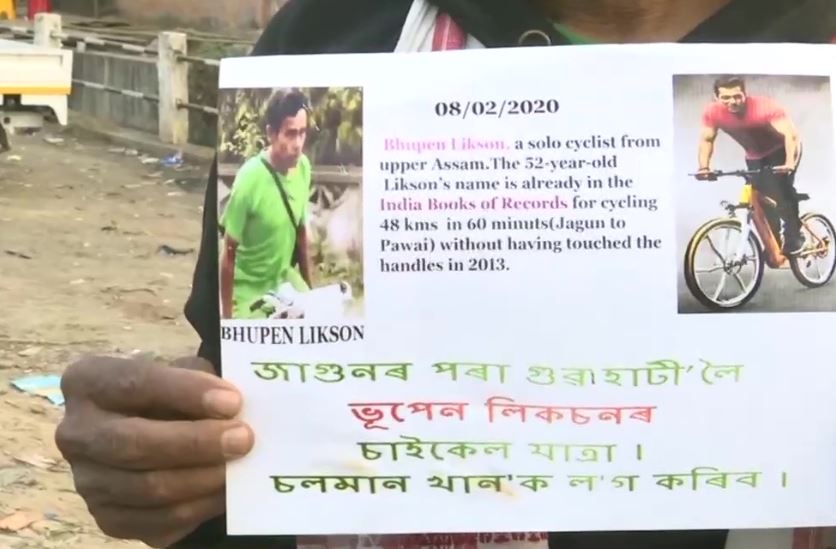 08/02/2020
Bhupen Likson, a solo cyclist from
upper Assam.The 52-year-old
Likson's name is already in the
India Books of Records for cycling
48 kms in 60 minuts(Jagun to
Pawai) without having touched the
handles in 2013.
BHUPEN LIKSON
জাগুনৰ পৰা গুৱাহাটী'লৈ
ভূপেন লিকচনৰ
চাইকেল যাত্ৰা ।
চলমান খান'ক ল'গ কৰিব ।